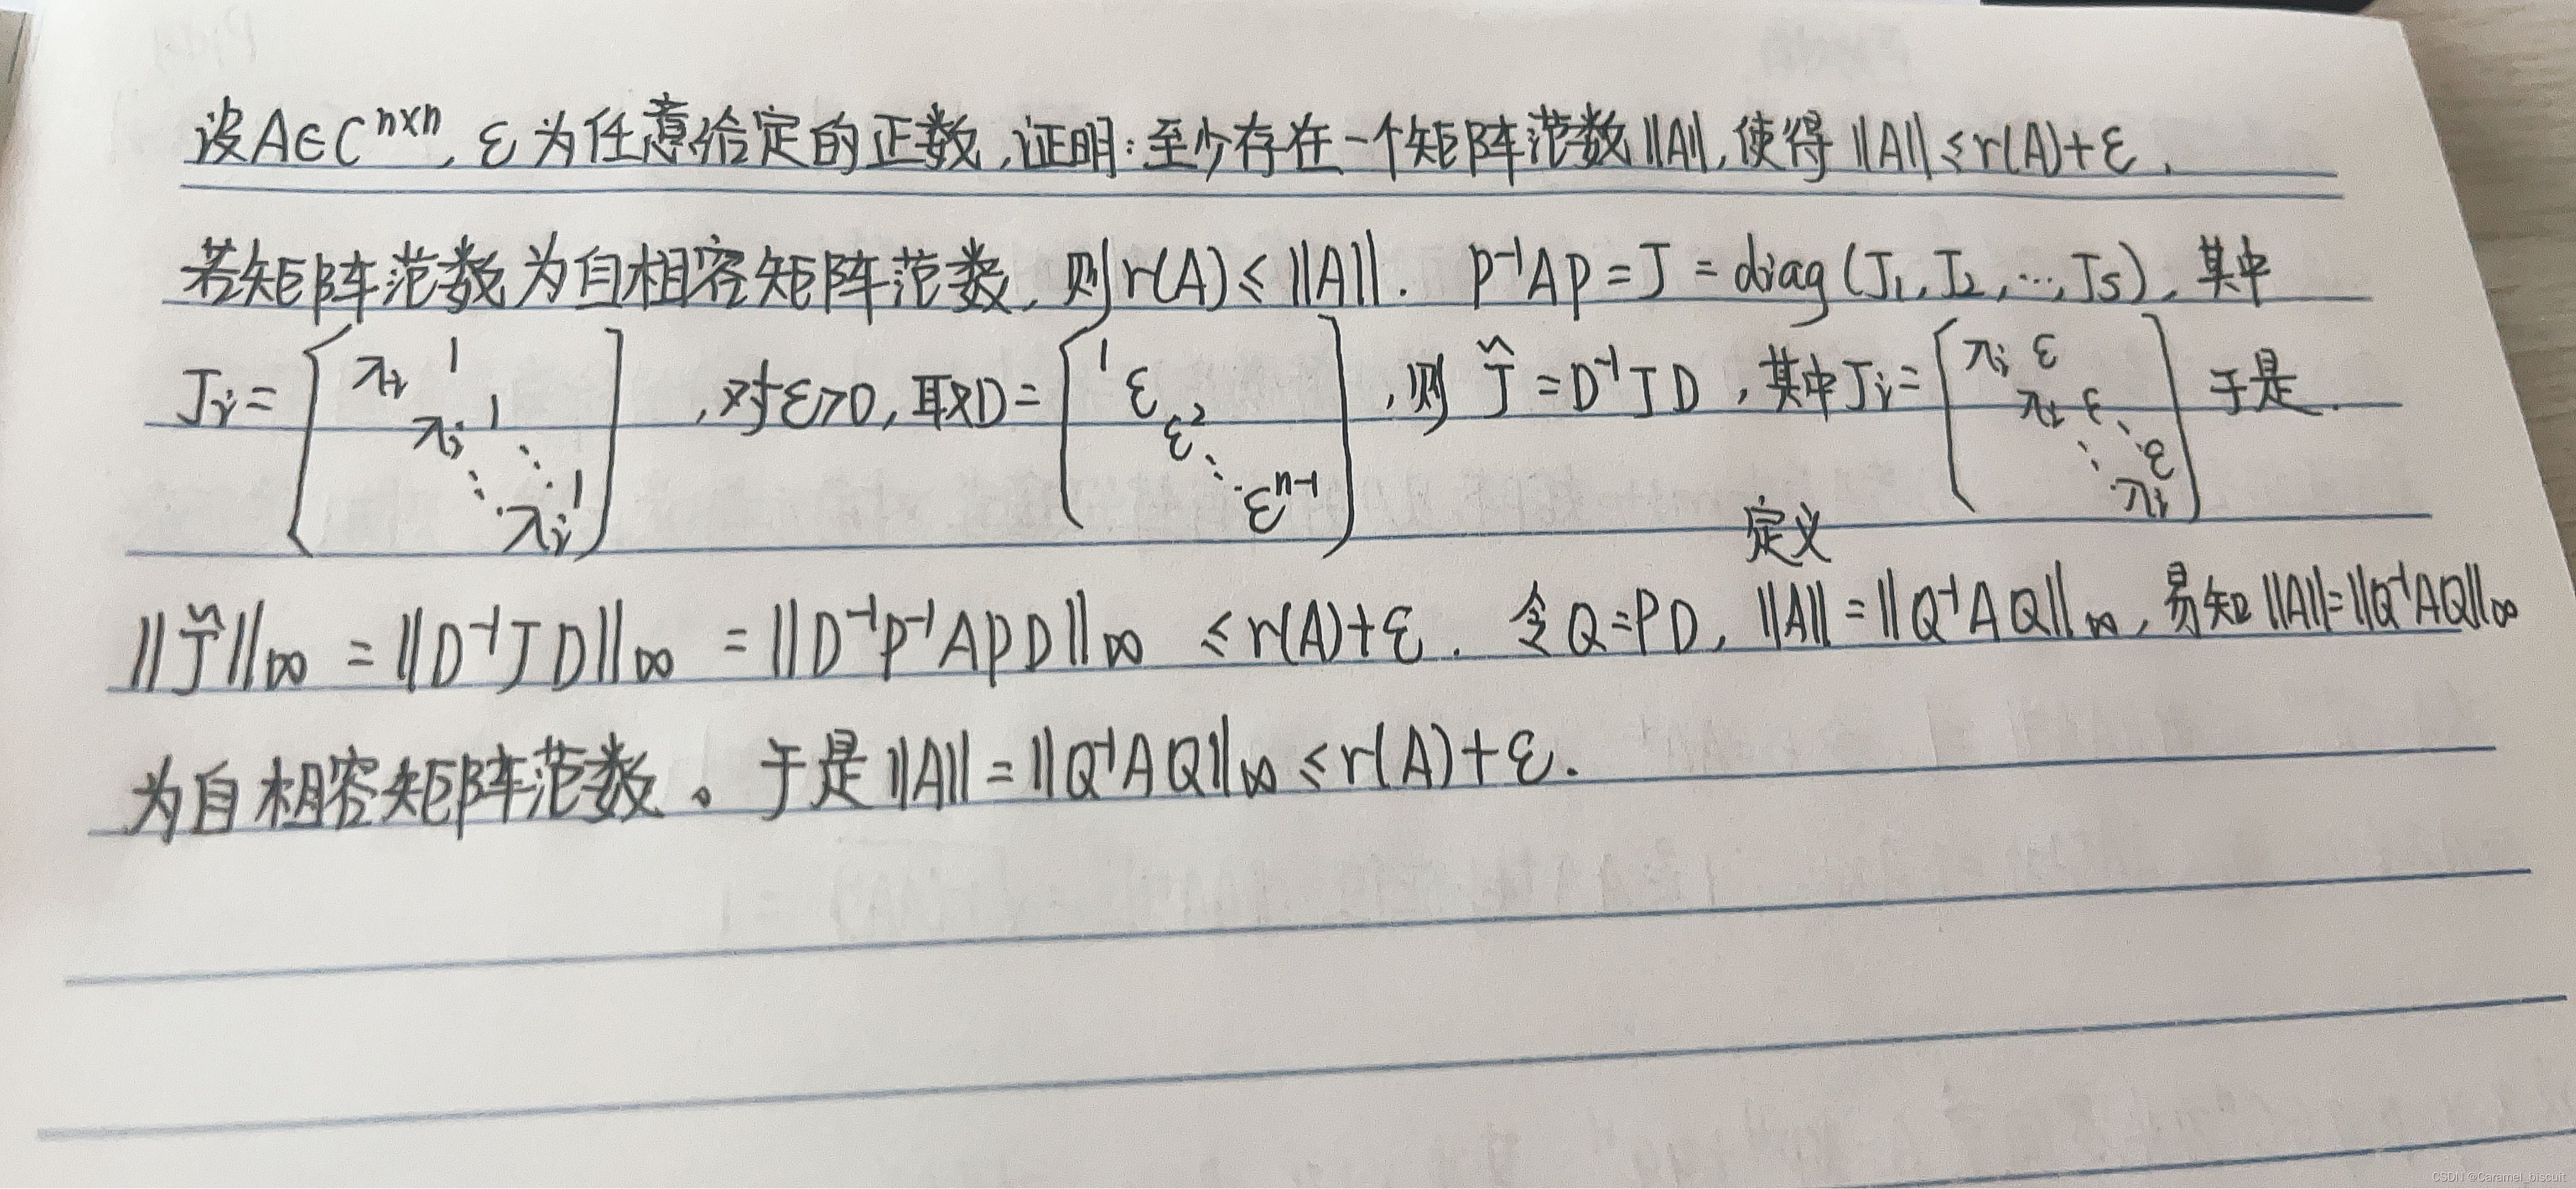 设A∈C^{n×n}, ε为任意给定的正数,证明:至少存在一个矩阵范数||A||,使得||A||≤r(A)+ε.
若矩阵范数为自相容矩阵范数,则r(A)≤||A||. P⁻¹AP=J=diag(J₁,J₂,…,Js),其中
Jᵢ=[λᵢ 1 λᵢ 1 ⋱ ⋱ 1 λᵢ],对ε>0,取D=[1 ε ε² ⋱ ε^{n-1}],则 Ĵ=D⁻¹JD,其中Jᵢ=[λᵢ ε λᵢ ε ⋱ ⋱ ε λᵢ]于是.
定义
||Ĵ||∞=||D⁻¹JD||∞=||D⁻¹P⁻¹APD||∞≤r(A)+ε. 令Q=PD, ||A||=||Q⁻¹AQ||∞,易知||A||=||Q⁻¹AQ||∞
为自相容矩阵范数。于是||A||=||Q⁻¹AQ||∞≤r(A)+ε.
CSDN @Caramel_biscuit